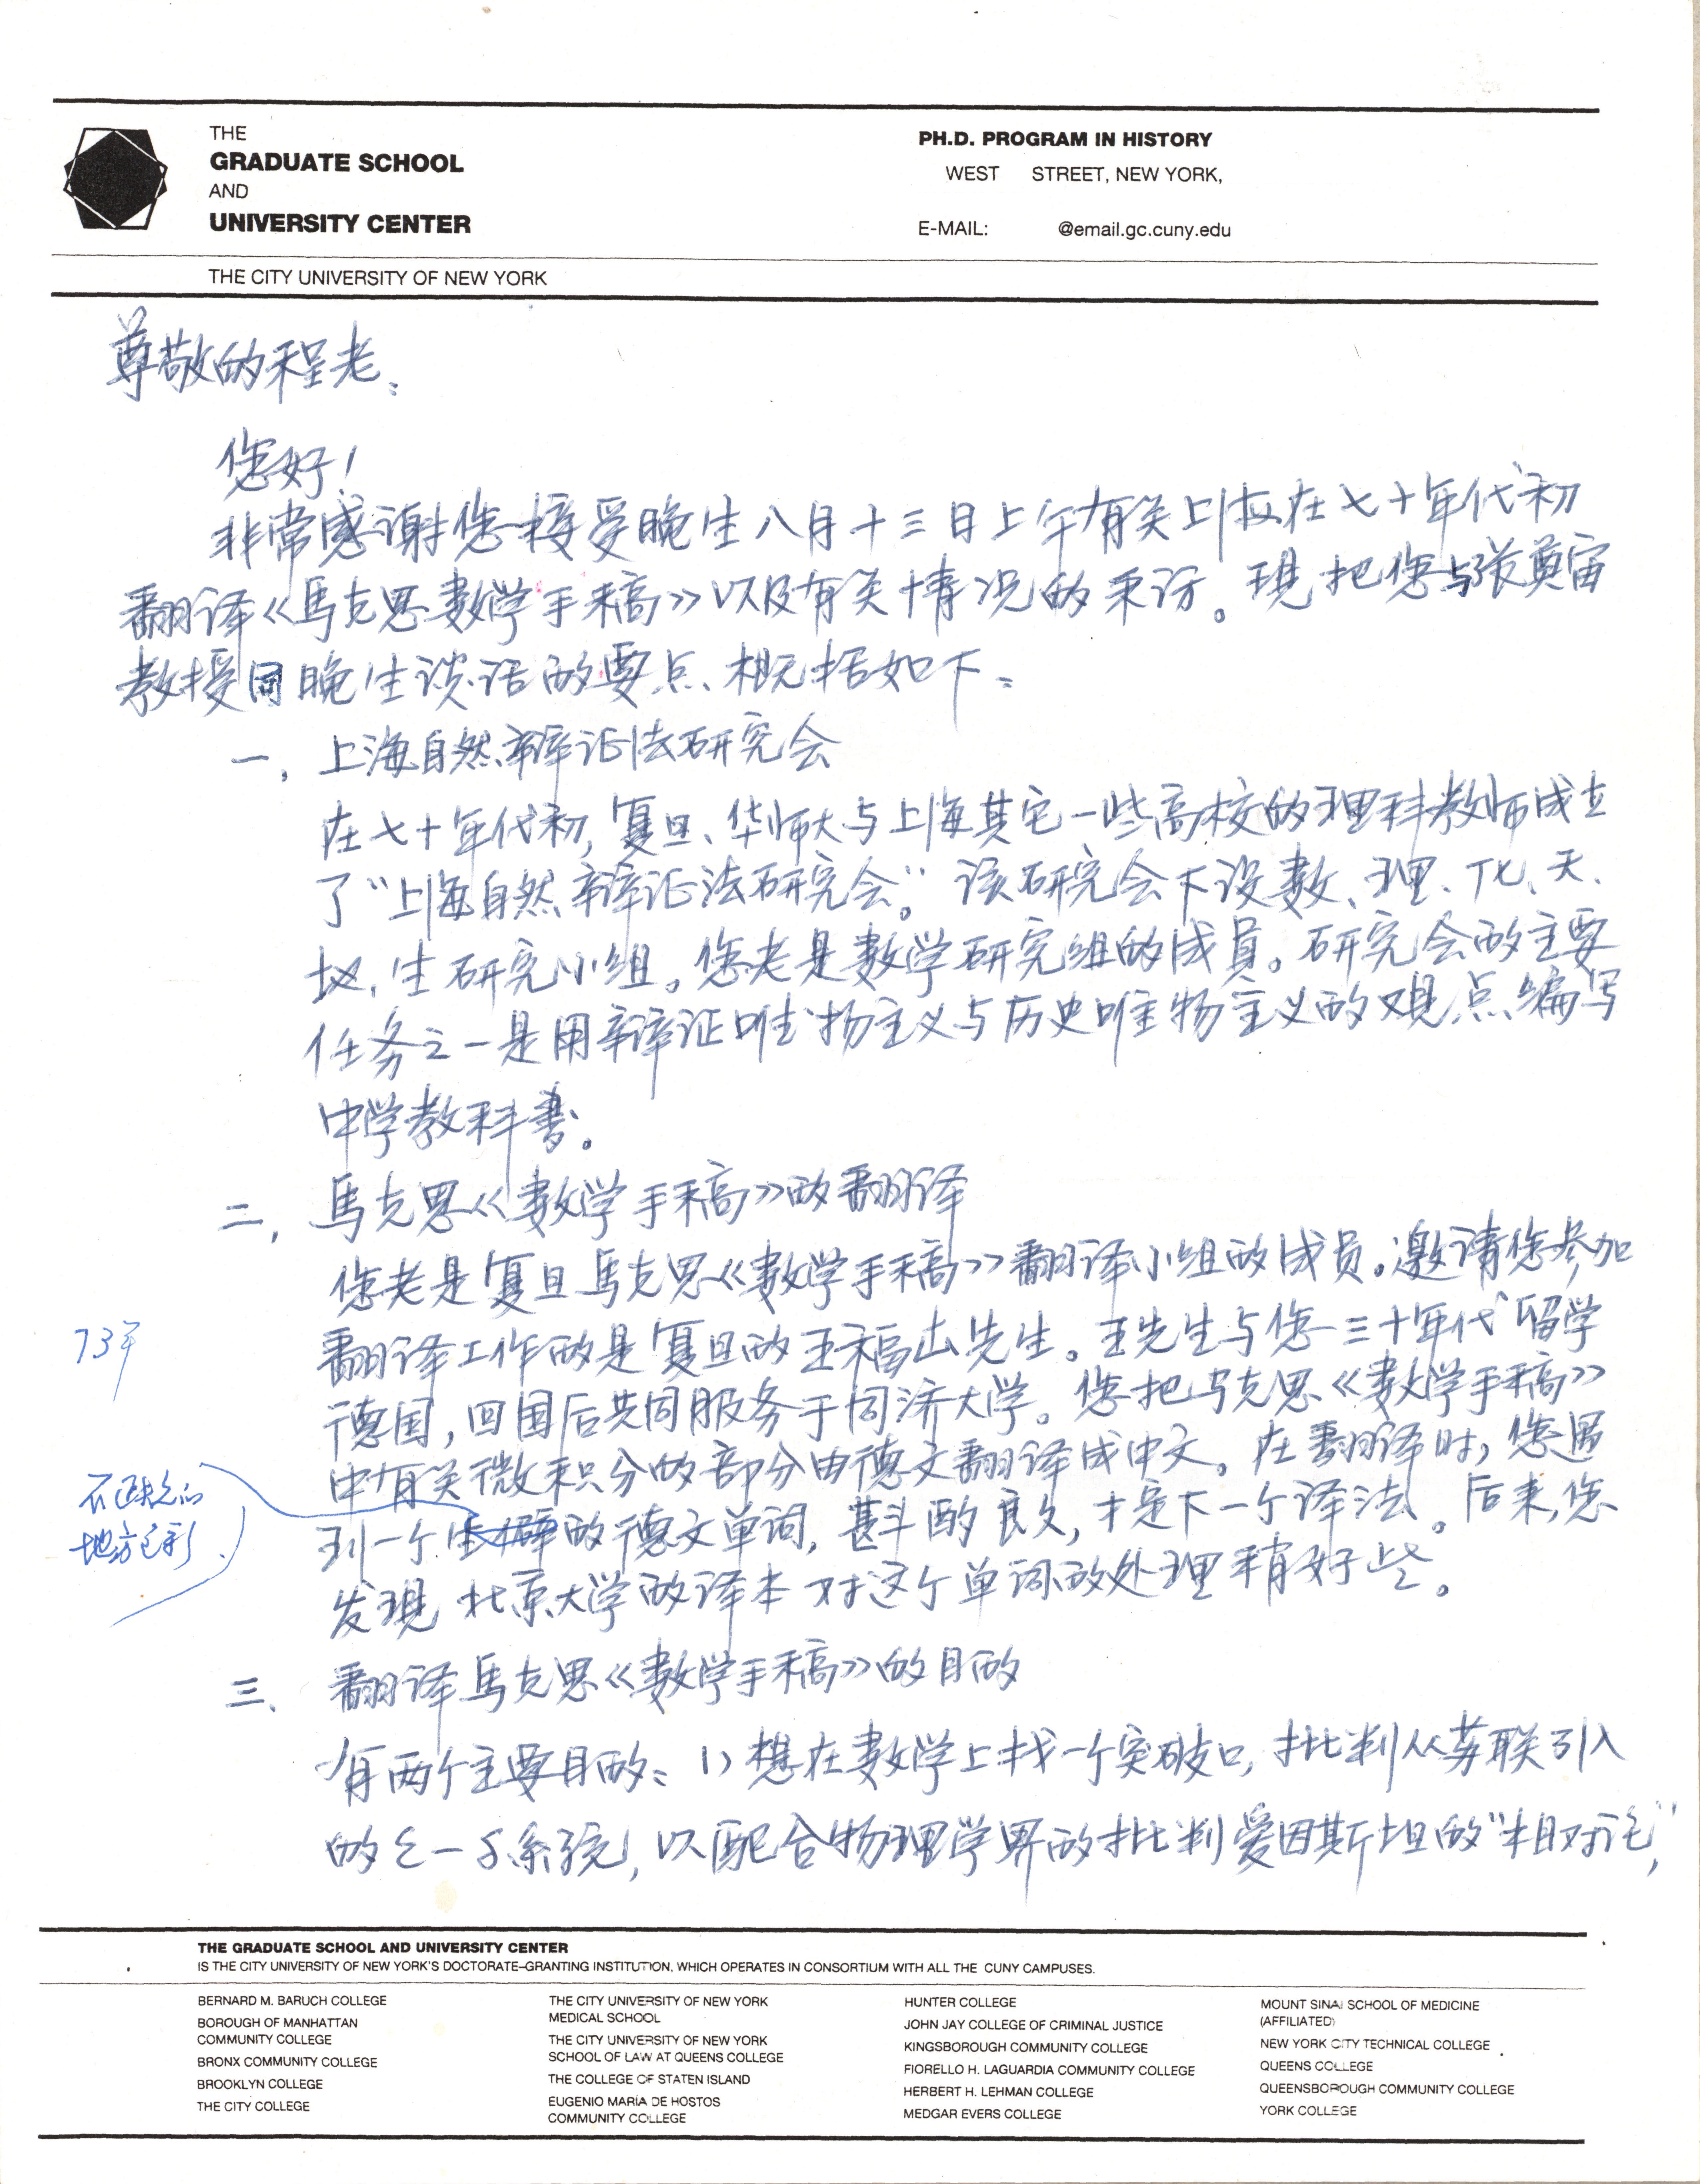 THE
GRADUATE SCHOOL
AND
UNIVERSITY CENTER
THE CITY UNIVERSITY OF NEW YORK
PH.D. PROGRAM IN HISTORY
WEST STREET, NEW YORK,
E-MAIL: @email.gc.cuny.edu
尊敬的程老:
您好!
非常感谢您接受晚生八月十三日上午有关上海在七十年代初
翻译《馬克思数学手稿》以及有关情况的采访。現把您与张奠宙
教授同晚生谈话的要点、概括如下:
一, 上海自然辩证法研究会
在七十年代初, 复旦、华师大与上海其它一些高校的理科教师成立
了“上海自然辩证法研究会”。该研究会下设数、理、化、天、
地、生研究小组。您老是数学研究组的成員。研究会的主要
任务之一是用辩证唯物主义与历史唯物主义的观点编写
中学教科書。
二, 馬克思《数学手稿》的翻译
您老是复旦馬克思《数学手稿》翻译小组的成员。邀请您参加
翻译工作的是复旦的王福山先生。王先生与您三十年代留学
德国, 回国后共同服务于同济大学。您把马克思《数学手稿》
中有关微积分的部分由德文翻译成中文。在翻译时, 您遇
到一个生僻的德文单词, 斟酌良久, 才定下一个译法。后来, 您
发現北京大学的译本对这个单词的处理稍好些。
73年
地方色彩
三、翻译馬克思《数学手稿》的目的
有两个主要目的: 1) 想在数学上找一个突破口, 批判从苏联引入
的ε-δ系统, 以配合物理学界的批判爱因斯坦的“相对论”,
THE GRADUATE SCHOOL AND UNIVERSITY CENTER
IS THE CITY UNIVERSITY OF NEW YORK'S DOCTORATE-GRANTING INSTITUTION, WHICH OPERATES IN CONSORTIUM WITH ALL THE CUNY CAMPUSES.
BERNARD M. BARUCH COLLEGE
BOROUGH OF MANHATTAN
COMMUNITY COLLEGE
BRONX COMMUNITY COLLEGE
BROOKLYN COLLEGE
THE CITY COLLEGE
THE CITY UNIVERSITY OF NEW YORK
MEDICAL SCHOOL
THE CITY UNIVERSITY OF NEW YORK
SCHOOL OF LAW AT QUEENS COLLEGE
THE COLLEGE OF STATEN ISLAND
EUGENIO MARÍA DE HOSTOS
COMMUNITY COLLEGE
HUNTER COLLEGE
JOHN JAY COLLEGE OF CRIMINAL JUSTICE
KINGSBOROUGH COMMUNITY COLLEGE
FIORELLO H. LAGUARDIA COMMUNITY COLLEGE
HERBERT H. LEHMAN COLLEGE
MEDGAR EVERS COLLEGE
MOUNT SINAI SCHOOL OF MEDICINE
(AFFILIATED)
NEW YORK CITY TECHNICAL COLLEGE
QUEENS COLLEGE
QUEENSBOROUGH COMMUNITY COLLEGE
YORK COLLEGE